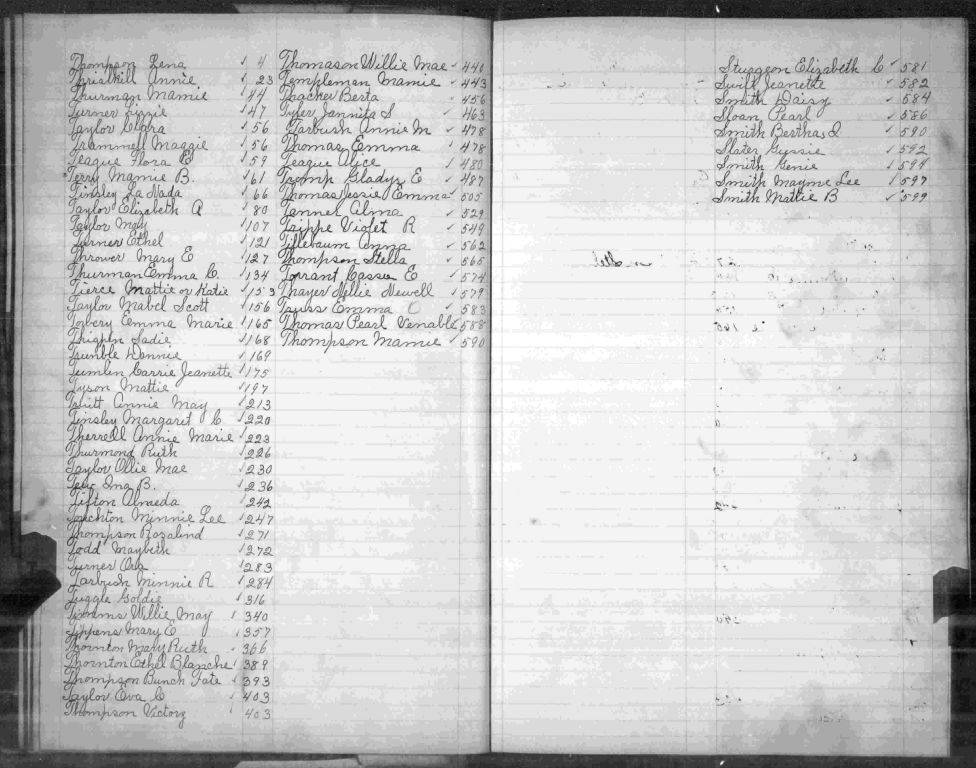 Thompson Lena 4
Thrialkill Annie 23
Thurman Mamie 44
Turner Lizzie 47
Taylor Clara 56
Trammell Maggie 56
Teague Flora E 59
Terry Mamie B. 61
Tinsley La Nada 66
Taylor Elizabeth A 80
Taylor May 107
Turner Ethel 121
Thrower Mary E 127
Thurman Emma C. 134
Tierce Mattie or Katie 153
Taylor Mabel Scott 156
Torbery Emma Marie 165
Sadie 168
Tumble Donnie 169
Tumlin Carrie Jeanette 175
Tyson Mattie 197
Annie May 213
Tinsley Margaret C. 220
Therrell Annie Marie 223
Thurmond Ruth 226
Taylor Ollie Mae 230
Ina B. 236
Tifton Almeda 242
Touchton Minnie Lee 247
Thompson Rosalind 271
Todd Maybeth 272
Turner Ora 283
Tarbush Minnie R 284
Tuggle Goldie 316
Timms Willie May 340
Tippens Mary E 357
Thornton Mary Ruth 366
Thornton Ethel Blanche 389
Thompson Bunch Tate 393
Taylor Eva C 403
Thompson Victory 403
Thomason Willie Mae 440
Templeman Mamie 443
Thacker Berta 456
Tyler Jannita S 463
Tarbush Annie M 478
Thomas Emma 478
Teague Alice 480
Tromp Gladys E 487
Thomas Jessie Emma 505
Tanner Alma 529
Trippe Violet R 549
Tillebaum Anna 562
Thompson Stella 565
Torrant Cassie E 574
Thayer Nellie Newell 579
Emma C 583
Thomas Pearl Venable 588
Thompson Mamie 590
Sturgeon Elizabeth C 581
Swift Jeanette 582
Smith Daisy 584
Sloan Pearl 586
Smith Bertha I 590
Slater Gussie 592
Smith Genie 594
Smith Mayme Lee 597
Smith Mattie B 599